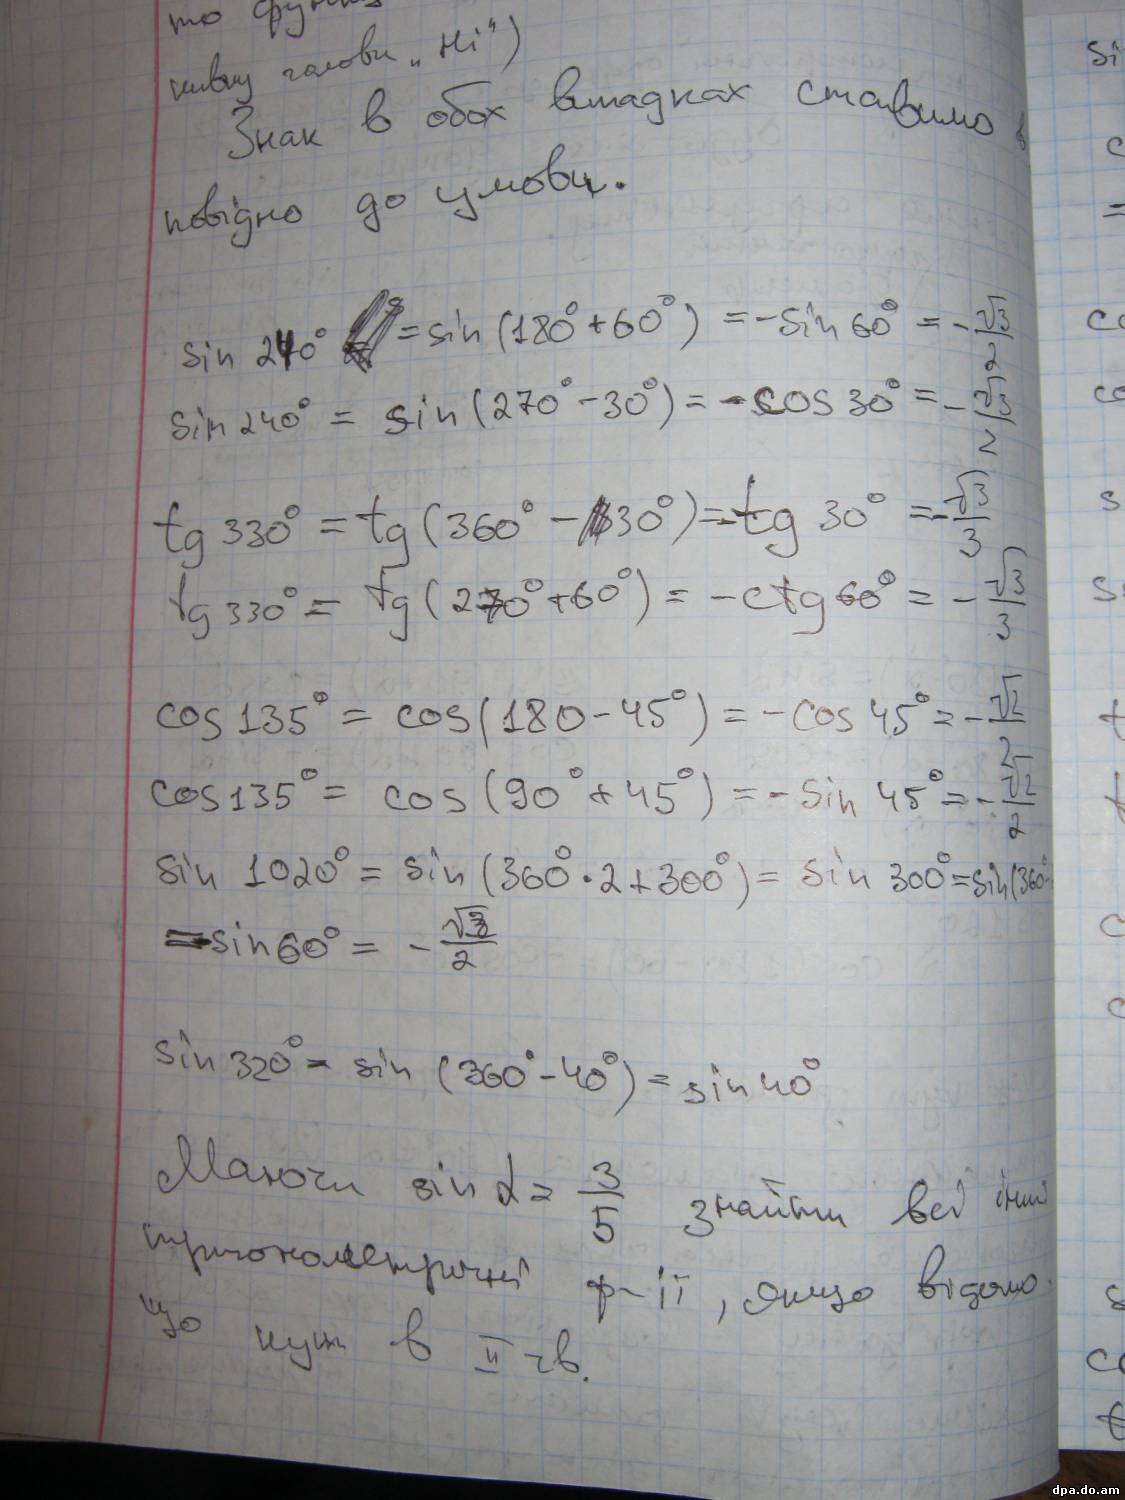 то функ
кивку голови „Ні“)
Знак в обох випадках ставимо в
повідно до умови.
sin 240° = sin (180° + 60°) = - sin 60° = - √3/2
sin 240° = sin (270° - 30°) = - cos 30° = - √3/2
tg 330° = tg (360° - 30°) = - tg 30° = - √3/3
tg 330° = tg (270° + 60°) = - ctg 60° = - √3/3
cos 135° = cos (180 - 45°) = - cos 45° = - √2/2
cos 135° = cos (90° + 45°) = - sin 45° = - √2/2
sin 1020° = sin (360° · 2 + 300°) = sin 300° = sin (360°-
= sin 60° = - √3/2
sin 320° = sin (360° - 40°) = sin 40°
Маючи sin α = 3/5 знайти всі інші
тригонометричні ф-ії, якщо відомо
що кут в II чв.
dpa.do.am